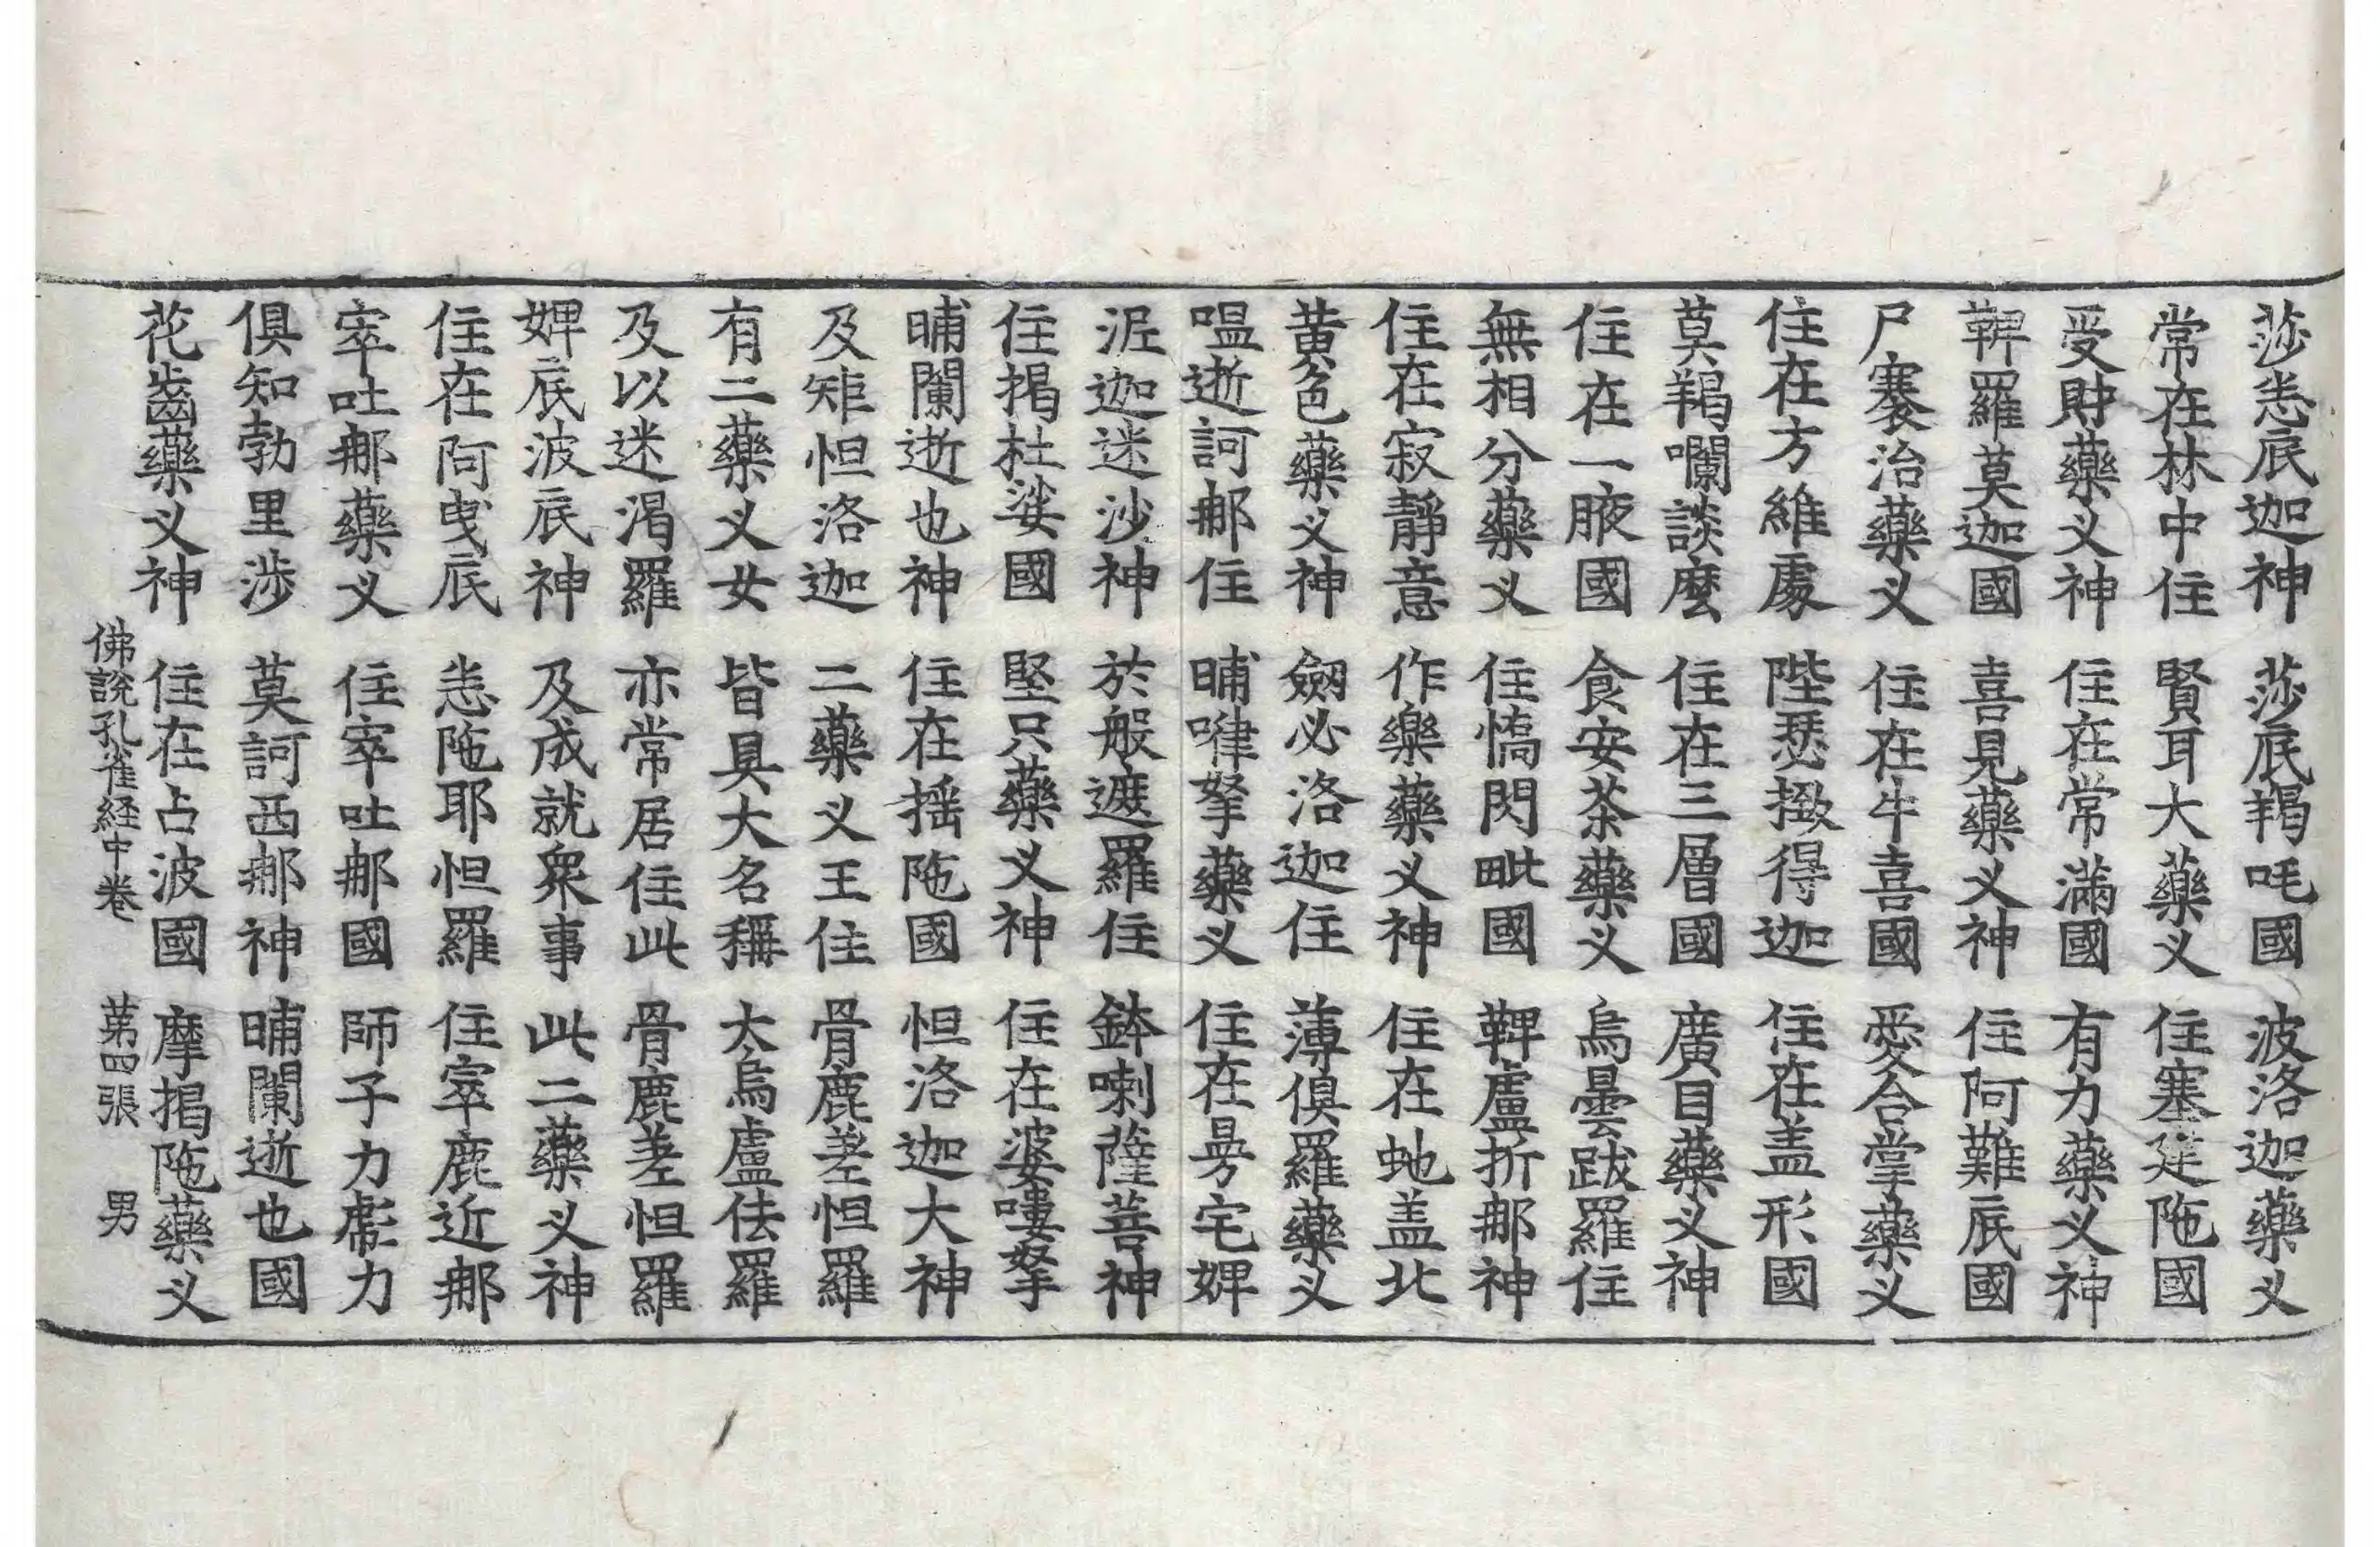 莎恙底迦神　莎底羯吒國　波洛迦藥叉
常在林中住　賢耳大藥叉　住塞建陁國
受財藥叉神　住在常滿國　有力藥叉神
鞞羅莫迦國　喜見藥叉神　住阿難底國
尸騫治藥叉　住在牛喜國　愛合掌藥叉
住在方維處　陛瑟撖得迦　住在盖形國
莫羯囒談麼　住在三層國　廣目藥叉神
住在一腋國　食安荼藥叉　烏曇跋羅住
無相分藥叉　住憍閃毗國　鞞盧折那神
住在寂靜意　作樂藥叉神　住在虵盖北
黃色藥叉神　劔必洛迦住　薄俱羅藥叉
嗢逝訶那住　晡㗚拏藥叉　住在曼宅婢
泥迦迷沙神　於般遮羅住　鉢喇薩菩神
住揭杜娑國　堅只藥叉神　住在婆嘍拏
晡闌逝也神　住在摇陁國　怛洛迦大神
及矩怛洛迦　二藥叉王住　骨鹿差怛羅
有二藥叉女　皆具大名稱　大烏盧佉羅
及以迷渴羅　亦常居住此　骨鹿差怛羅
婢底波底神　及成就衆事　此二藥叉神
住在阿曳底　恙陁耶怛羅　住窣鹿近那
窣吐那藥叉　住窣吐那國　師子力虎力
俱知勃里涉　莫訶西那神　晡闌逝也國
花齒藥叉神　住在占波國　摩揭陁藥叉
佛說孔雀経中卷　第四張　男